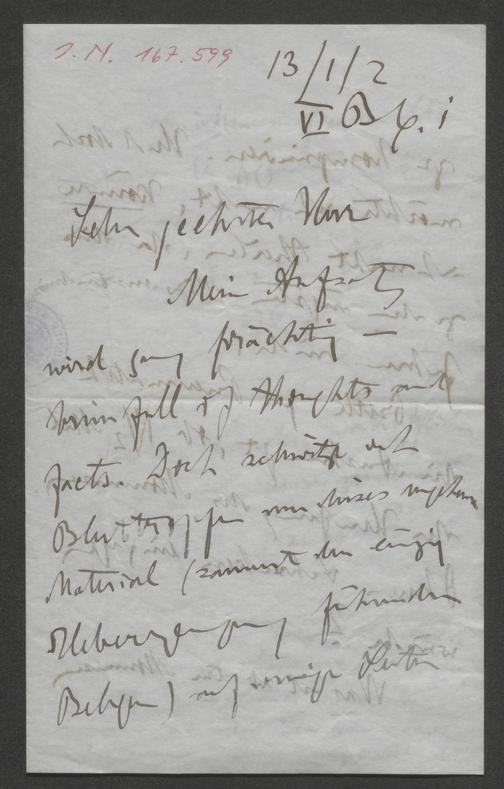 I. N. 167.599
13/1/2
VI
Sehr geehrter Herr
Mein Aufsatz
wird ganz prächtig —
brim full of thoughts and
facts. Doch schwitze ich
Blutstropfen um dieses
Material (sammt den einzig
Ueberzeugung führenden
Belegen) auf wenige Seiten